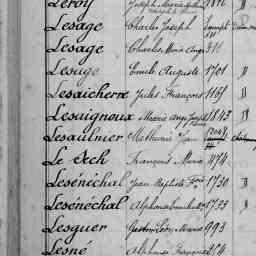 Leroy Joseph Marie 1816 D
Lesage Charles Joseph
Lesage Charles Marie Ang 316
Lesage Emile Auguste 1701 D
Lesaicherre Jules François 1165 D
Lesaignoux Marie Ange Joseph 1843 D
Lesaulnier Mathurin Jean
Le Sech François Marie 474
Lesénéchal Jean Baptiste Fçois 1730 D
Lesénéchal Alphonse 1733 D
Lesguer Gaston Léon Marie 993
Lesné Alphonse François 214